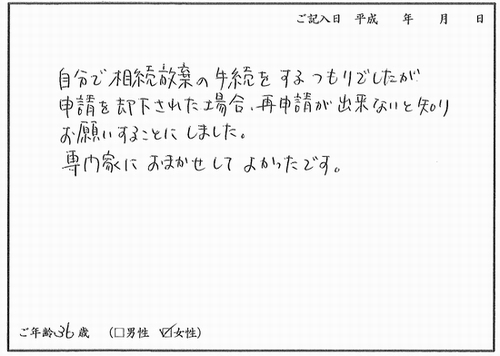 ご記入日 平成 年 月 日
自分で相続放棄の手続をするつもりでしたが
申請を却下された場合、再申請が出来ないと知り
お願いすることにしました。
専門家におまかせしてよかったです。
ご年齢 36 歳 (□男性 ☑女性)